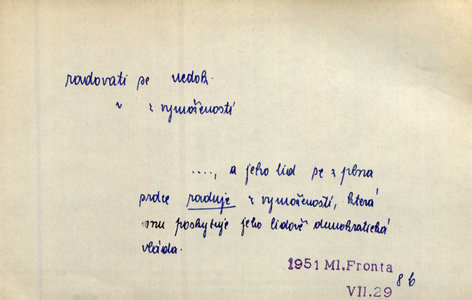 radovati se nedok.
" z vymožeností
...., a jeho lid se z plna
srdce raduje z vymožeností, která
mu poskytuje jeho lidově demokratická
vláda.
1951 Ml.Fronta
VII.29 8b